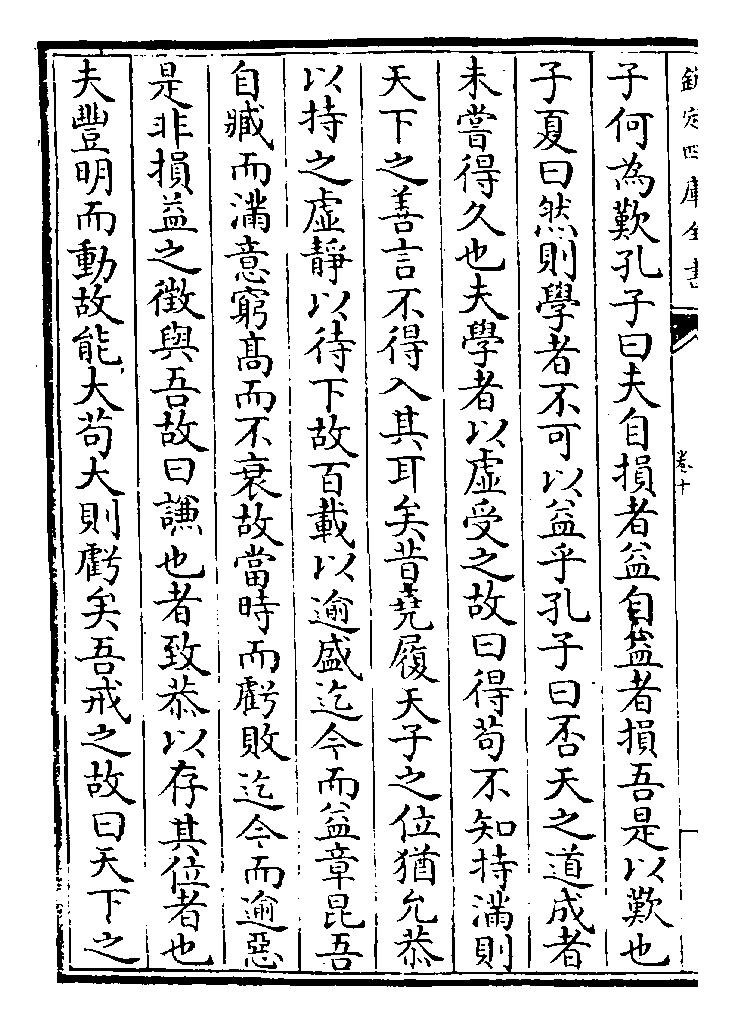 欽定四庫全書
卷十
子何為歎孔子曰夫自損者益自益者損吾是以歎也
子夏曰然則學者不可以益乎孔子曰否天之道成者
未嘗得久也夫學者以虛受之故曰得茍不知持滿則
天下之善言不得入其耳矣昔堯履天子之位猶允恭
以持之虛靜以待下故百載以逾盛迄今而益章昆吾
自臧而滿意窮髙而不衰故當時而虧敗迄今而逾惡
是非損益之徵與吾故曰謙也者致恭以存其位者也
夫豐明而動故能大茍大則虧矣吾戒之故曰天下之